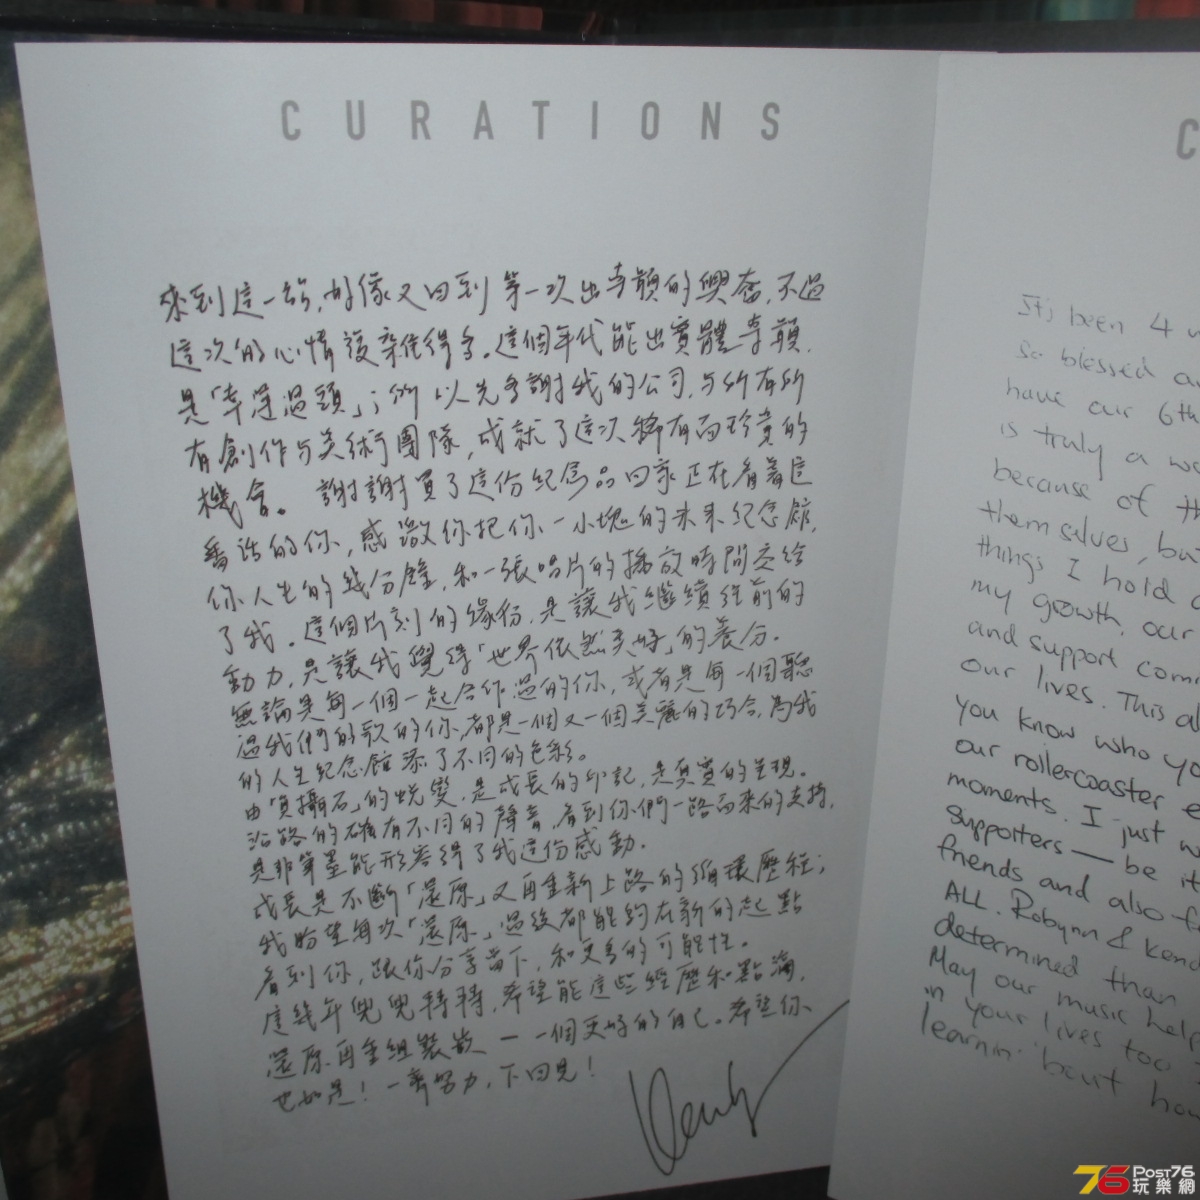 CURATIONS
來到這一站,好像又回到第一次出專輯的興奮,不過
這次的心情複雜得多。這個年代能出實體專輯,
是「幸運過頭」;所以先多謝我的公司,与所有所
有創作与美術團隊,成就了這次稀有而珍貴的
機會。謝謝買了這份紀念品回家正在看着這
番話的你,感激你把你一小塊的未來紀念館,
你人生的幾分鐘,和一張唱片的播放時間交給
了我。這個片刻的緣份,是讓我繼續往前的
動力,是讓我覺得「世界依然美好」的養分。
無論是每一個一起合作過的你,或者是每一個聽
過我們的歌的你,都是一個又一個美麗的巧合,為我
的人生紀念館添了不同的色彩。
由「貝攝石」的蛻變,是成長的印記,是真實的呈現。
沿路的確有不同的聲音,看到你們一路而來的支持,
是非筆墨能形容得了我這份感動。
成長是不斷「還原」又再重新上路的循環歷程;
我盼望每次「還原」過後都能夠在新的起點
看到你,跟你分享當下,和更多的可能性。
這幾年兜兜轉轉,希望能這些經歷和點滴,
還原再重組製嵌 — 一個更好的自己。希望你
也如是!一齊努力,下回見!
C
It's been 4
so blessed
have our 6th
is truly a
because of
themselves,
things I hold
my growth, our
and support
our lives. This
you know who
our rollercoaster
moments. I just
supporters — be it
friends and also
ALL. Robynn &
determined than
May our music help
in your lives too
learnin' bout
76 POST76
玩樂網